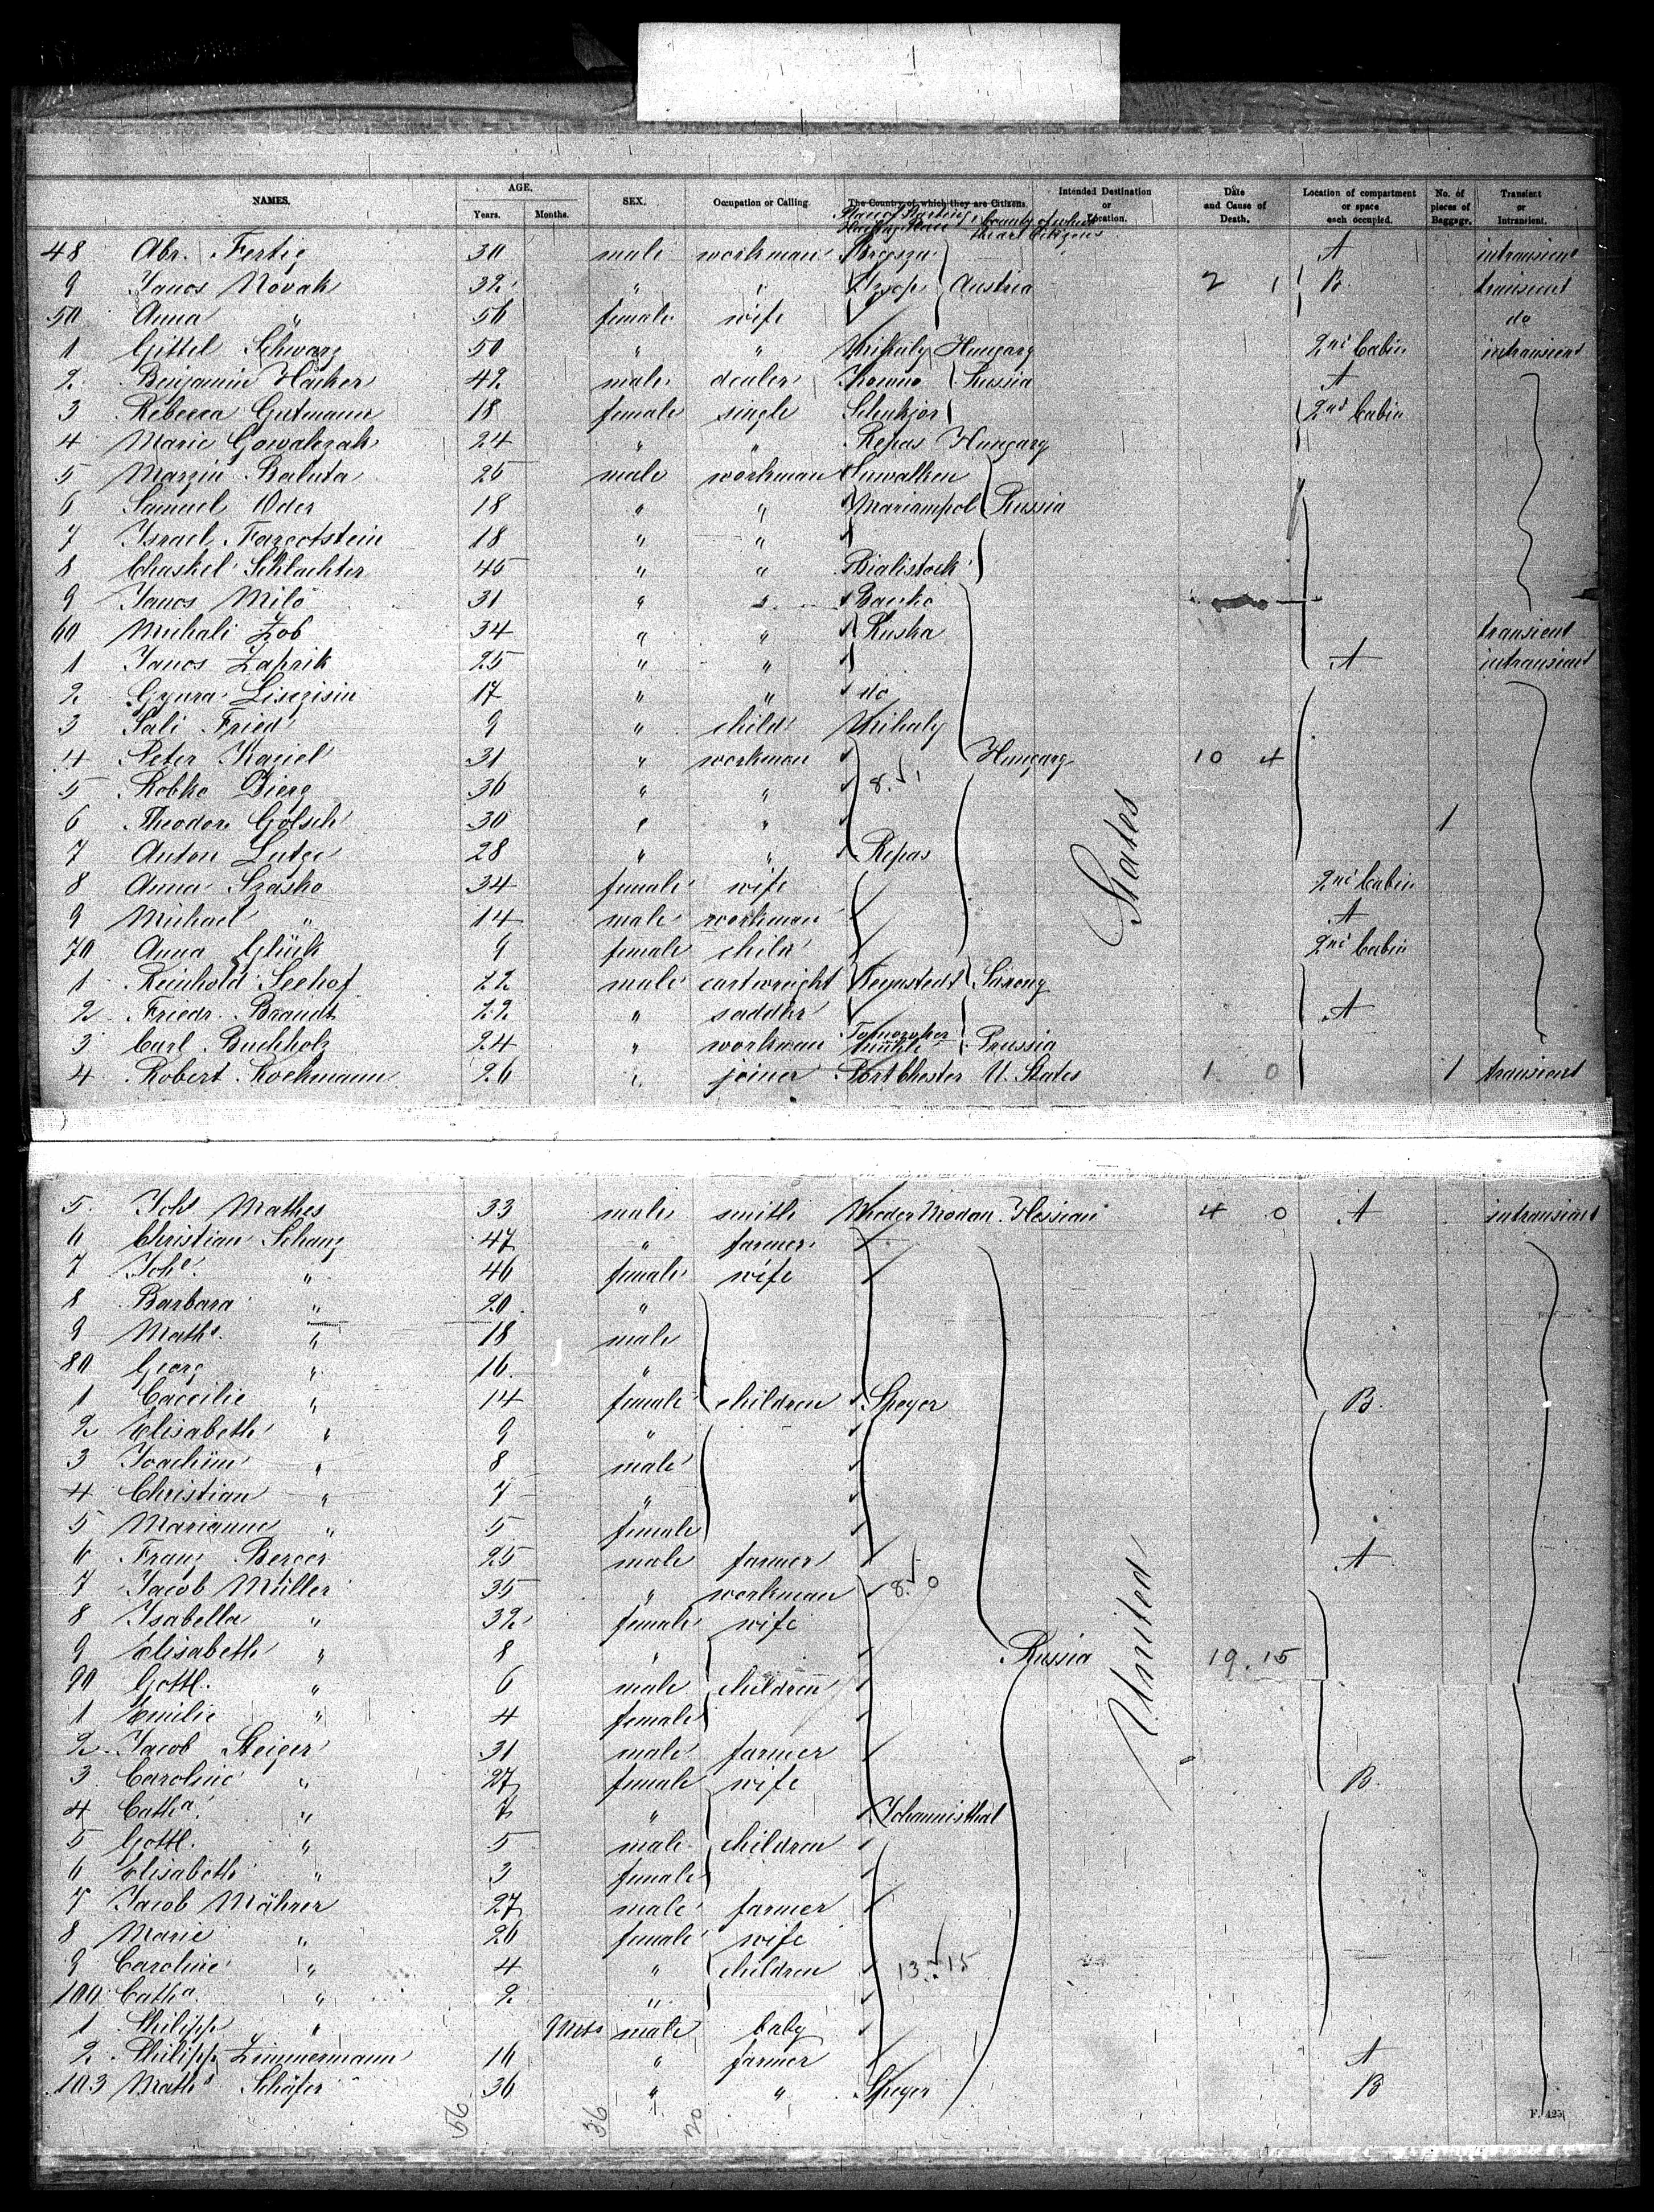 NAMES. AGE. SEX. Occupation or Calling. The Country of which they are Citizens. Intended Destination or Location. Date and Cause of Death. Location of compartment or space each occupied. No. of pieces of Baggage. Transient or Intransient.
Years. Months.
48 Abr. Fertig 30 male workman A intransient
9 Janos Novak 32 " " Austria 2 1 B. transient
50 Anna " 56 female wife do
1 Gittel Schwarz 50 " " Mihaly Hungary 2nd Cabin intransient
2 Benjamin Hacker 42 male dealer Kowno Russia A
3 Rebecca Gutmann 18 female single 2nd Cabin
4 Marie Gowalczak 24 " " Repas Hungary
5 Marzin Baluta 25 male workman Suwalken
6 Samuel Oder 18 " " Mariampol Russia
7 Israel 18 " "
8 Chaskel Schlachter 45 " " Bialistock
9 Janos Milo 31 " "
60 Mihali Zob 34 " " Ruska transient
1 Janos Zaprik 25 " " A intransient
2 17 " " do
3 Sali Fried 9 " child Mihaly
4 Peter 31 " workman Hungary 10 4
5 36 " " 8. 1
6 Theodor Golsch 30 " " 1
7 Anton 28 " " Repas
8 Anna Szasko 34 female wife 2nd Cabin
9 Michael " 14 male workman A
70 Anna Glück 9 female child 2nd Cabin
1 Reinhold Seehof 22 male cartwright
2 Friedr. Brandt 22 " saddler A
3 Carl Buchholz 24 " workman Prussia
4 Robert Kochmann 26 " joiner Port Chester U. States 1 0 1 transient
States
5 Johs Mathes 33 male smith Nieder Modau Hessian 4 0 A intransient
6 Christian Schanz 47 " farmer
7 Johe. " 46 female wife
8 Barbara " 20 "
9 Maths. " 18 male
80 Georg " 16 "
1 Caecilie " 14 female children Speyer B.
2 Elisabeth " 9 "
3 Joachim " 8 male
4 Christian " 7 "
5 Marianne " 5 female
6 Franz Berger 25 male farmer A
7 Jacob Müller 35 " workman 8. 0
8 Isabella " 32 female wife
9 Elisabeth " 8 " Russia 19. 15
90 Gottl. " 6 male children
1 Emilie " 4 female
2 Jacob Steiger 31 male farmer
3 Caroline " 27 female wife B.
4 Catha. " 7 " Johannisthal
5 Gottl. " 5 male children
6 Elisabeth " 3 female
7 Jacob Mährer 27 male farmer
8 Marie " 26 female wife
9 Caroline " 4 " children 13. 15
100 Catha. " 2 "
1 Philipp " 9 Mos male baby
2 Philipp Zimmermann 16 " farmer A
103 Maths Schäfer 36 " " Speyer B
United
56 36 20
F. 425